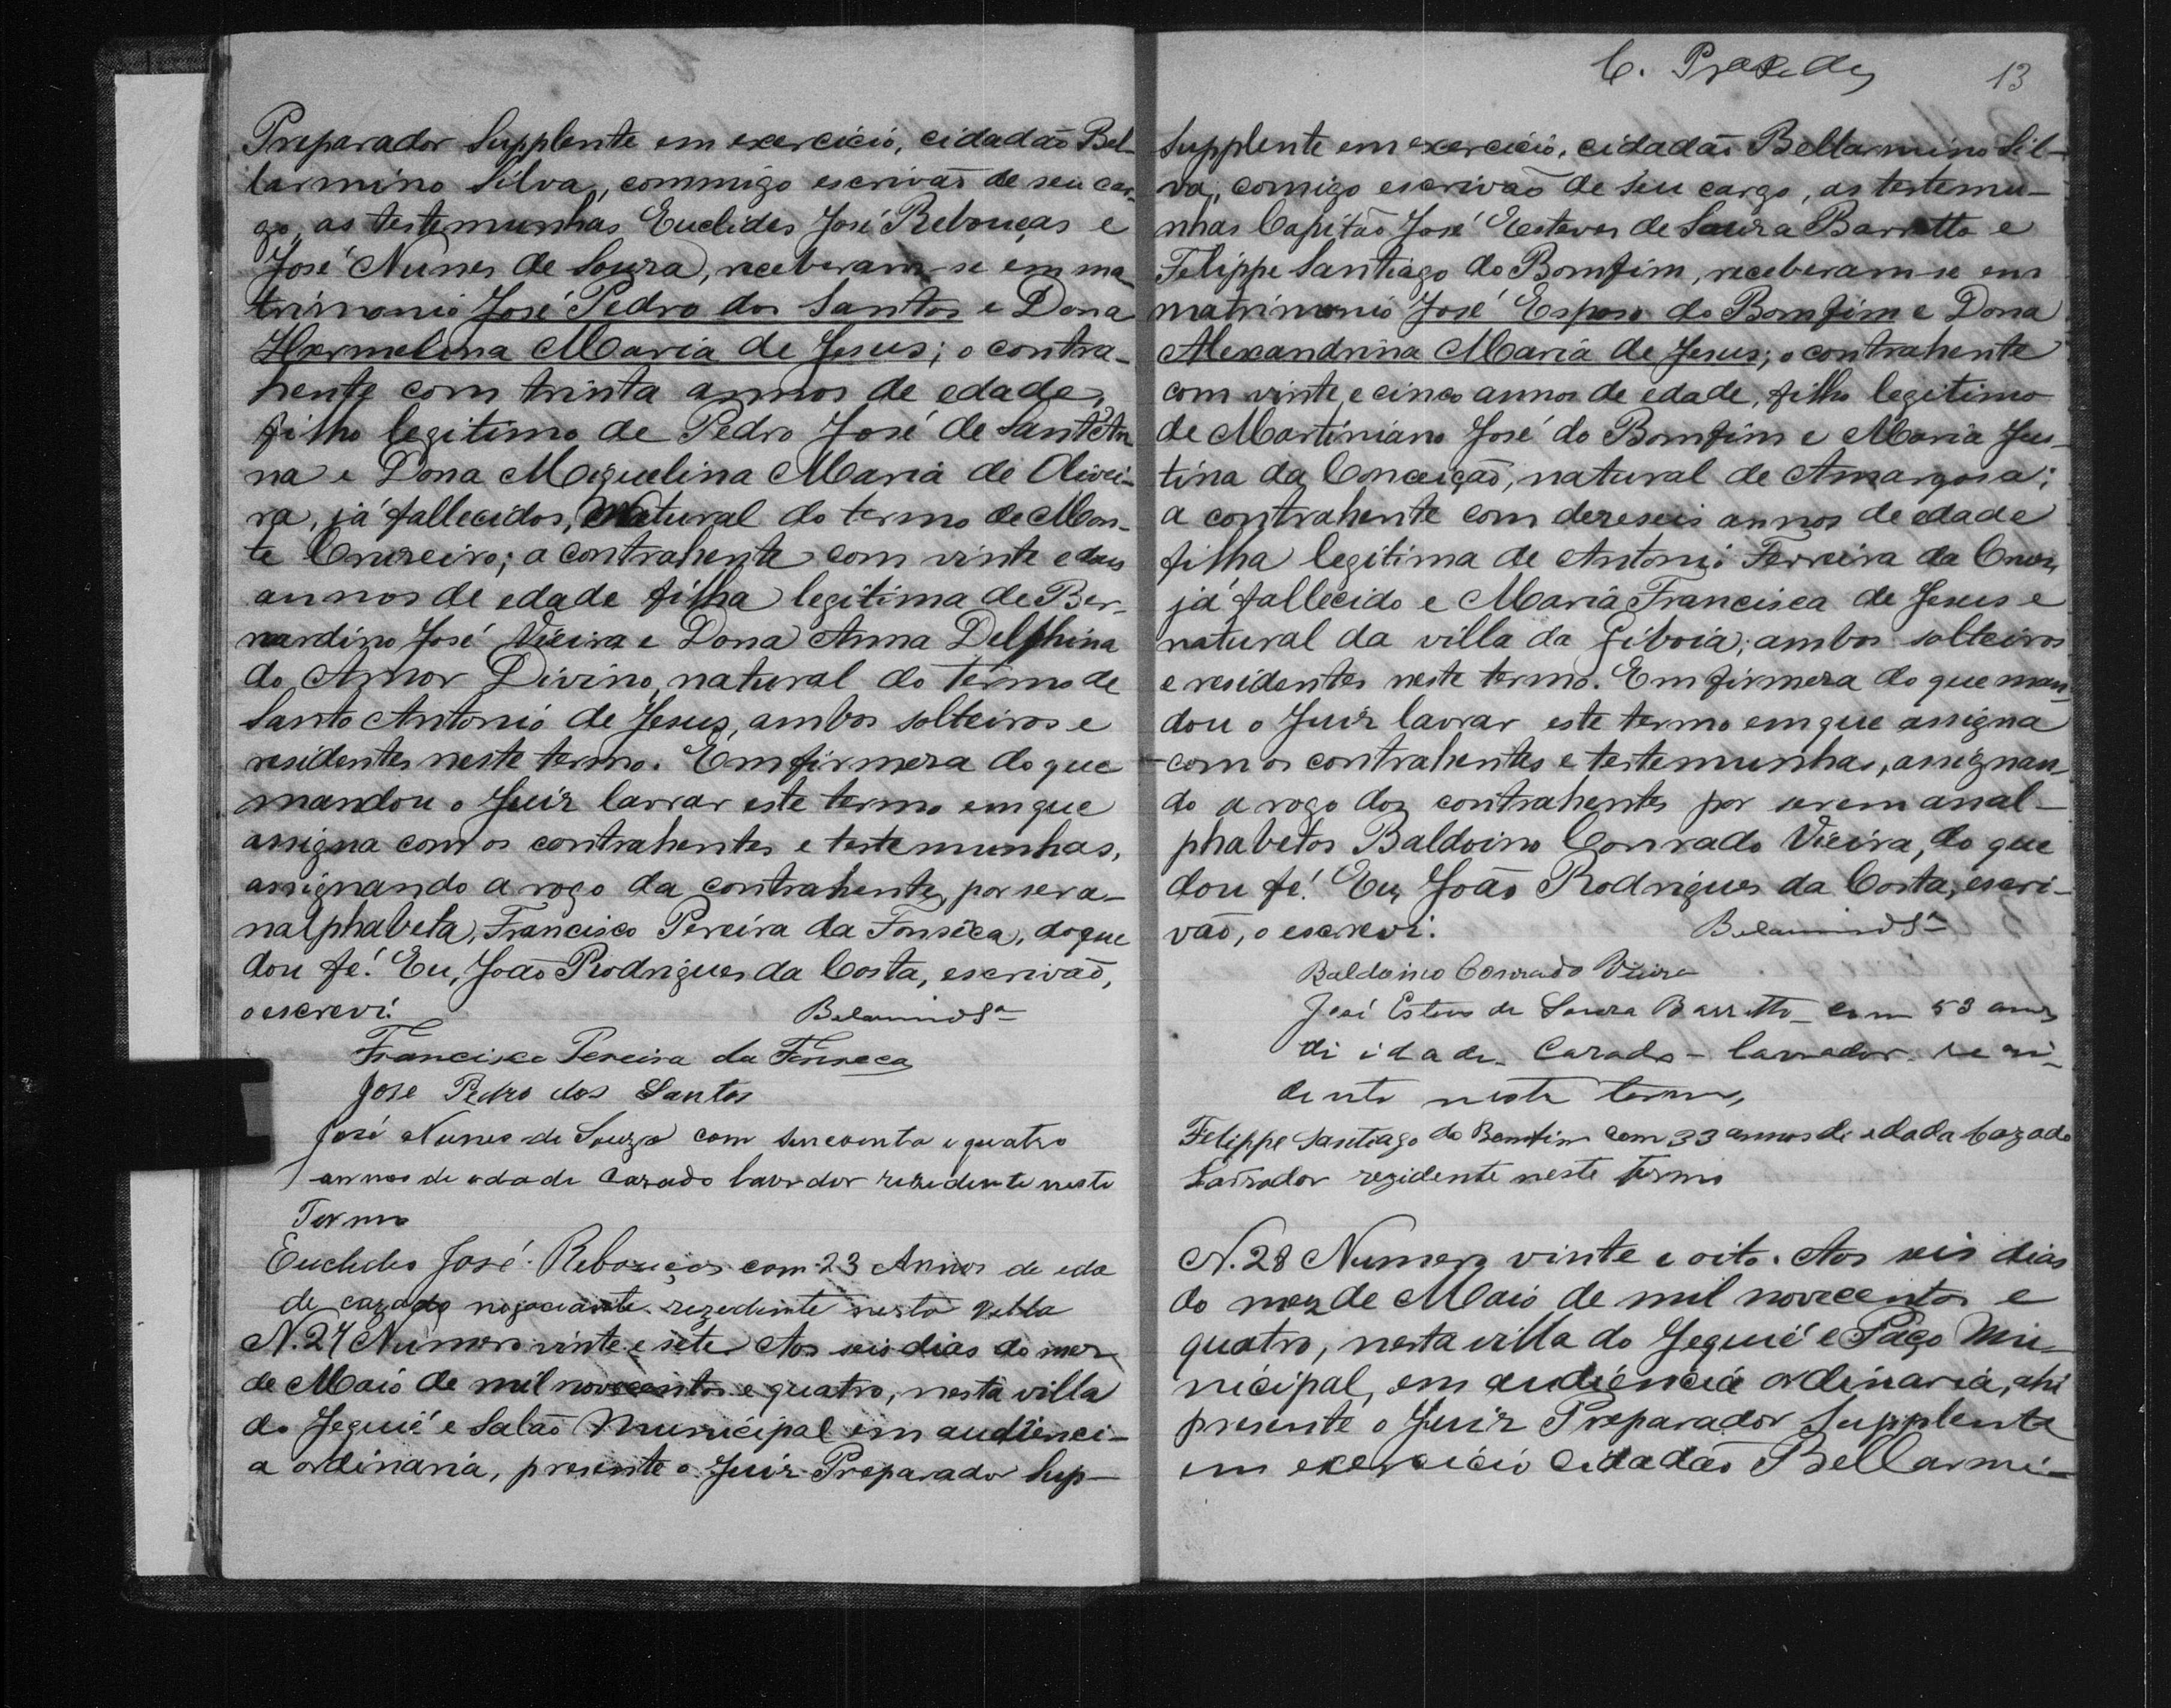 Preparador Supplente em exercicio, cidadão Bel-
larmino Silva, commigo escrivão de seu car-
go, as testemunhas Euclides José Rebouças e
José Nunes de Souza, receberam-se em ma-
trimonio José Pedro dos Santos e Dona
Hermelina Maria de Jesus; o contra-
hente com trinta annos de edade,
filho legitimo de Pedro José de Sant'An
na e Dona Miguelina Maria de Olivei-
ra, já fallecidos, Natural do termo de Mon-
te Cruzeiro; a contrahente com vinte e dous
annos de edade filha legitima de Ber-
nardino José Vieira e Dona Anna Delphina
do Amor Divino, natural do termo de
Santo Antonio de Jesus, ambos solteiros e
residentes neste termo. Em firmeza do que
mandou o Juiz lavrar este termo em que
assigna com os contrahentes e testemunhas,
assignando a rogo da contrahente, por ser a-
nalphabeta, Francisco Pereira da Fonseca, do que
dou fé. Eu, João Rodrigues da Costa, escrivão,
o escrevi. Belarmino Sa
Francisco Pereira da Fonseca
Jose Pedro dos Santos
José Nunes de Souza com sincoenta e quatro
annos de edade Cazado lavrador rezidente neste
Termo
Euclides José Rebouças com 23 Annos de eda
de cazado negociante rezedinte nesta villa
N. 27 Numero vinte e sete. Aos seis dias do mez
de Maio de mil novecentos e quatro, nesta villa
do Jequié e Salão Municipal em audienci-
a ordinaria, presente o Juiz Preparador Sup-
C. Praxedes 13
Supplente em exercicio, cidadão Bellarmino Sil-
va, comigo escrivão de seu cargo, as testemu-
nhas Capitão José Esteves de Souza Barretto e
Felippe Santiago do Bomfim, receberam-se em
matrimonio José Esposo do Bomfim e Dona
Alexandrina Maria de Jesus; o contrahente
com vinte e cinco annos de edade, filho legitimo
de Martiniano José do Bomfim e Maria Jus-
tina da Conceição, natural de Amargosa;
a contrahente com dezeseis annos de edade
filha legitima de Antonio Ferreira da Cruz,
já fallecido e Maria Francisca de Jesus e
natural da villa da Giboia; ambos solteiros
e residentes neste termo. Em firmeza do que man-
dou o Juiz lavrar este termo em que assigna
com os contrahentes e testemunhas, assignan-
do a rogo dos contrahentes por serem anal-
phabetos Baldoino Conrado Vieira, do que
dou fé. Eu, João Rodrigues da Costa, escri-
vão, o escrevi. Belarmino Sa
Baldoino Conrado Vieira
José Esteves de Souza Barretto com 53 annos
di idade Cazado - lavrador - rezi-
dente neste termo,
Felippe Santiago do Bomfim com 33 annos de edada Cazado
Lavrador rezidente neste termo
N. 28 Numero vinte e oito. Aos seis dias
do mez de Maio de mil novecentos e
quatro, nesta villa do Jequié e Paço Mu-
nicipal, em audiencia ordinaria, ahi
presente o Juiz Preparador Supplente
em exercicio Cidadão Bellarmi-